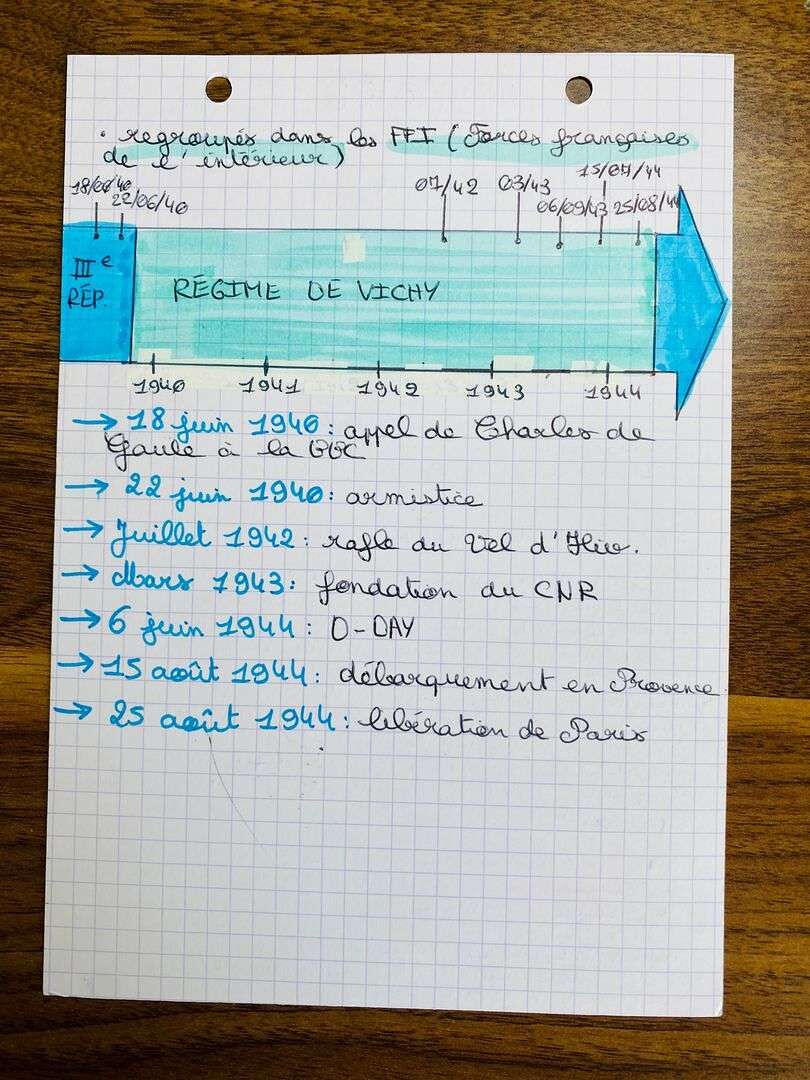 • regroupés dans les FFI (Forces françaises
de l'intérieur)
15/07/44
18/06/40 07/42 03/43
22/06/40 06/09/43 25/08/44
IIIe
RÉP.
RÉGIME DE VICHY
1940 1941 1942 1943 1944
→ 18 juin 1940 : appel de Charles de
Gaule à la BBC
→ 22 juin 1940 : armistice
→ Juillet 1942 : rafle du Vel d'Hiv.
→ Mars 1943 : fondation du CNR
→ 6 juin 1944 : D-DAY
→ 15 août 1944 : débarquement en Provence
→ 25 août 1944 : libération de Paris